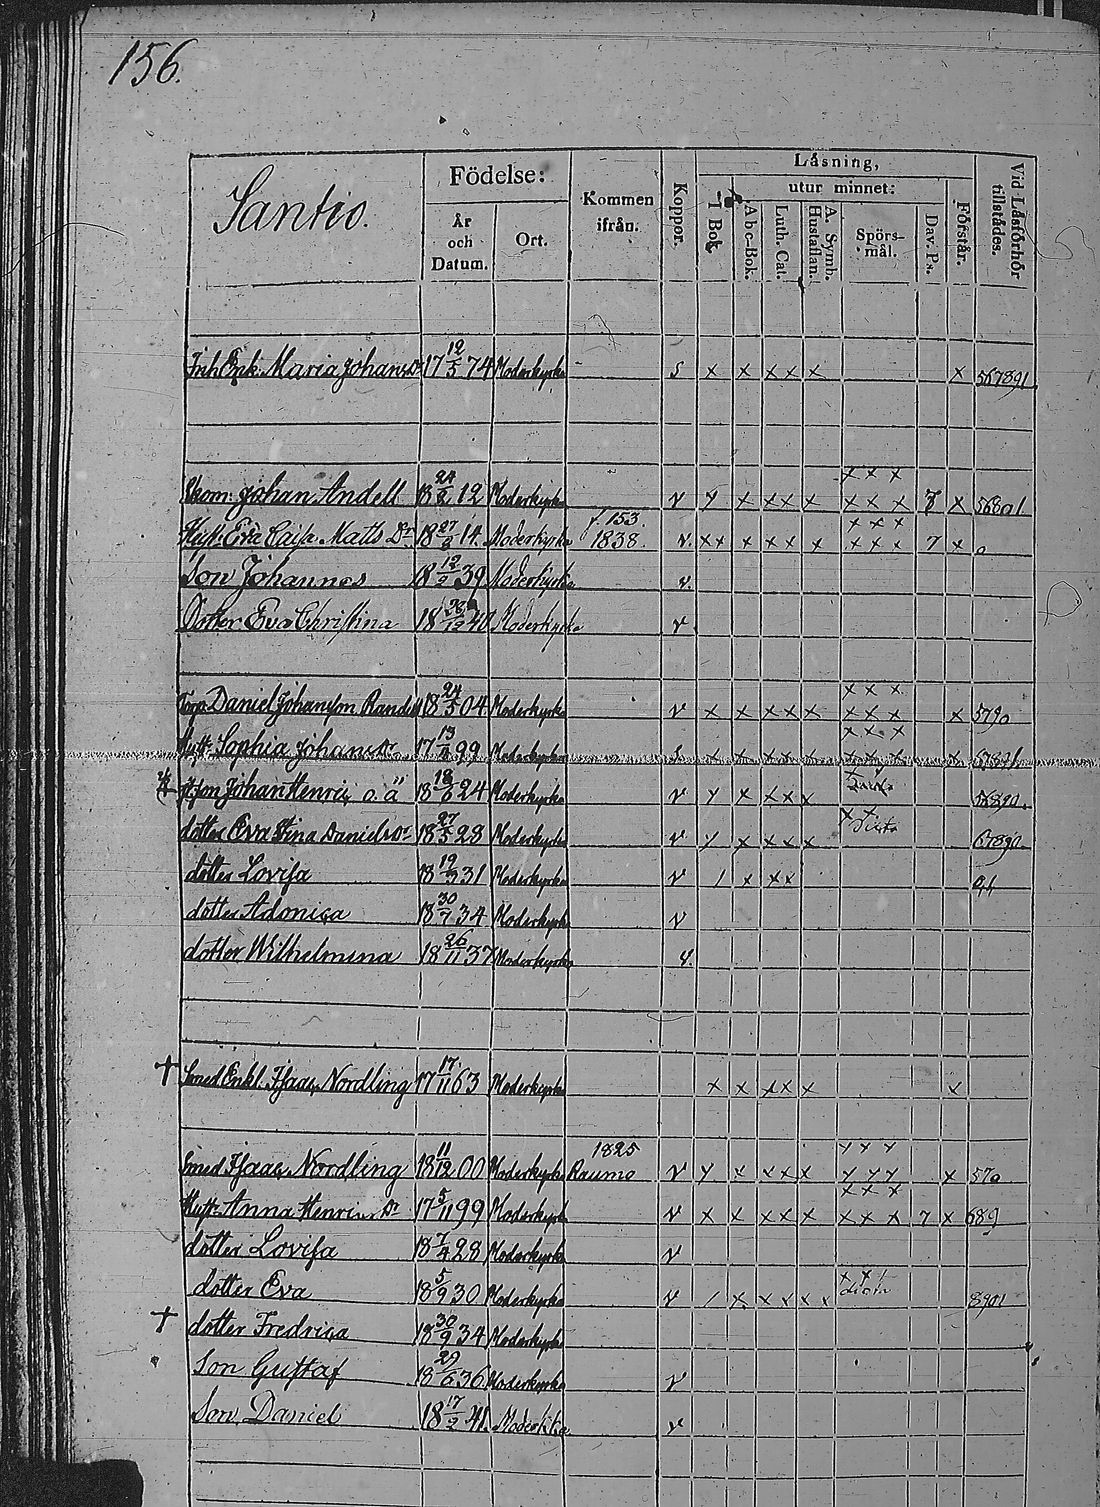 156.
Santio.
Födelse:
År och Datum.
Ort.
Kommen ifrån.
Koppor.
Läsning,
I Bok.
utur minnet:
Abc-Bok.
Luth. Cat.
A. Symb. Hustaflan.
Spörs-mål.
Dav. Ps.
Förstår.
Vid Läsförhör tillstädes.
Inh Enk. Maria Johansdr 17 12/5 74 Moderkyrka s x x x x x x 567891
x x x
Johan Andell 18 24/8 12 Moderkyrka v y x x x x x x x x 7 x
f. 153 x x x
Hust. Eva Caisa Matts Dr 18 27/8 14 Moderkyrka 1838. v. x x x x x x x x x 7 x 0
Son Johannes 18 12/2 39 Moderkyrka v.
Dotter Eva Christina 18 /12 40 Moderkyrka v.
x x x
Daniel Johansson Randel 18 24/5 04 Moderkyrka v x x x x x x x x x x 5790
x x x
Hust. Sophia Johansdr 17 13/ 99 Moderkyrka s x x x x x x x x x x
Johan Henric o. ä 18 18/6 24 Moderkyrka v y x x x x 56890
x x
dotter Eva Stina Danielsdr 18 27/5 28 Moderkyrka v y x x x x 67890
dotter Lovisa 18 19/3 31 Moderkyrka v / x x x 91
dotter Adonica 18 30/7 34 Moderkyrka v
dotter Wilhelmina 18 26/11 37 Moderkyrka v.
† Smed Enkl. Isaac Nordling 17 17/11 63 Moderkyrka x x x x x x x
1825 y y y
Smed Isaac Nordling 18 11/12 00 Moderkyrka Raumo v y x x x x y y y x 570
x x x
Hust. Anna Henrics Dr 17 5/11 99 Moderkyrka v x x x x x x x x 7 x 689
dotter Lovisa 18 7/4 28 Moderkyrka v
x x /
dotter Eva 18 5/9 30 Moderkyrka v / x x x x x 8901
† dotter Fredrica 18 30/9 34 Moderkyrka
Son Gustaf 18 29/6 36 Moderkyrka v
Son Daniel 18 17/2 41. v